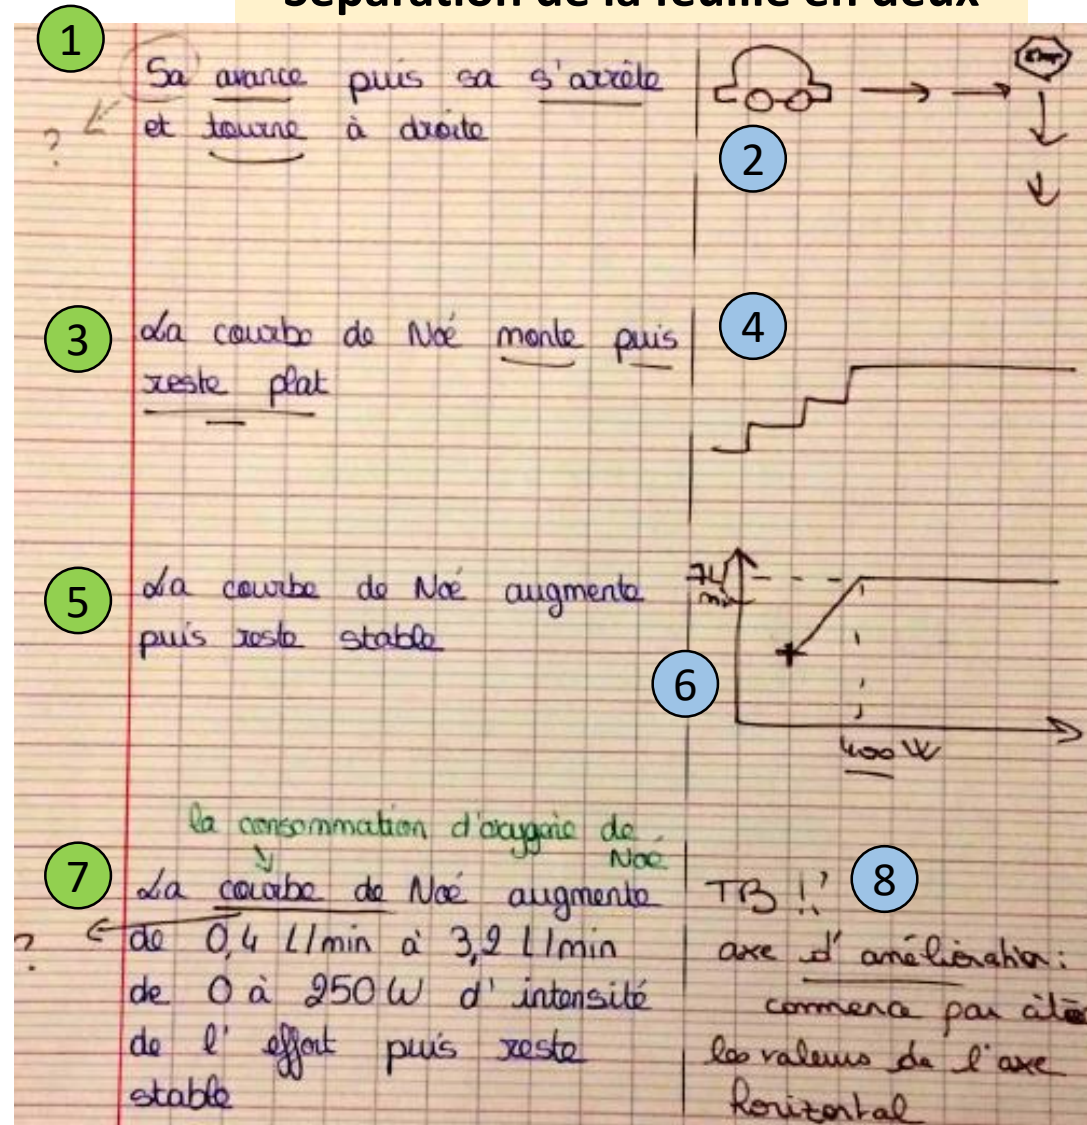 Séparation de la feuille en deux
1
Sa avance puis sa s'arrête
et tourne à droite
?
2
3
La courbe de Noé monte puis
reste plat
4
5
La courbe de Noé augmente
puis reste stable
6
400 W
la consommation d'oxygène de
Noé
7
La courbe de Noé augmente
de 0,4 L/min à 3,2 L/min
de 0 à 250 W d'intensité
de l'effort puis reste
stable
?
TB !!
8
axe d'amélioration :
commence par citer
les valeurs de l'axe
horizontal